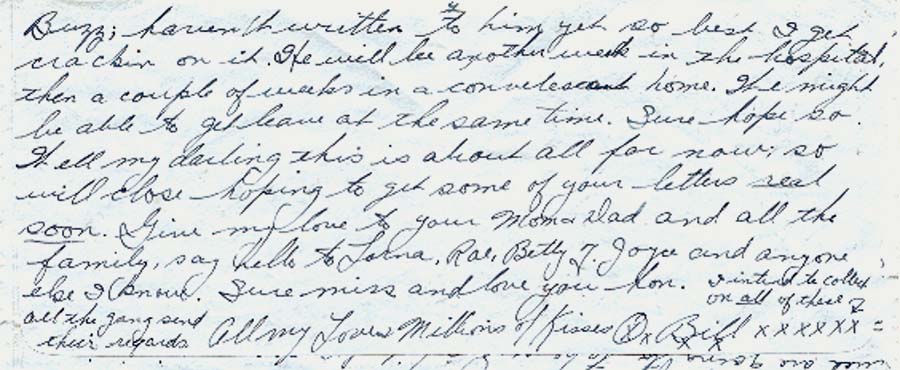 Buzz; haven't written to him yet so best I get
crackin on it. He will be another week in the hospital,
then a couple of weeks in a convelescent home. He might
be able to get leave at the same time. Sure hope so.
Well my darling this is about all for now; so
will close hoping to get some of your letters real
soon. Give my love to your Mom & Dad and all the
family, say hello to Lorna, Rae, Betty J. Joyce and anyone
else I know. Sure miss and love you hon. I intend to collect
on all of these
All the gang send
their regards All my Loves Millions of Kisses Ox Bill xxxxxx =